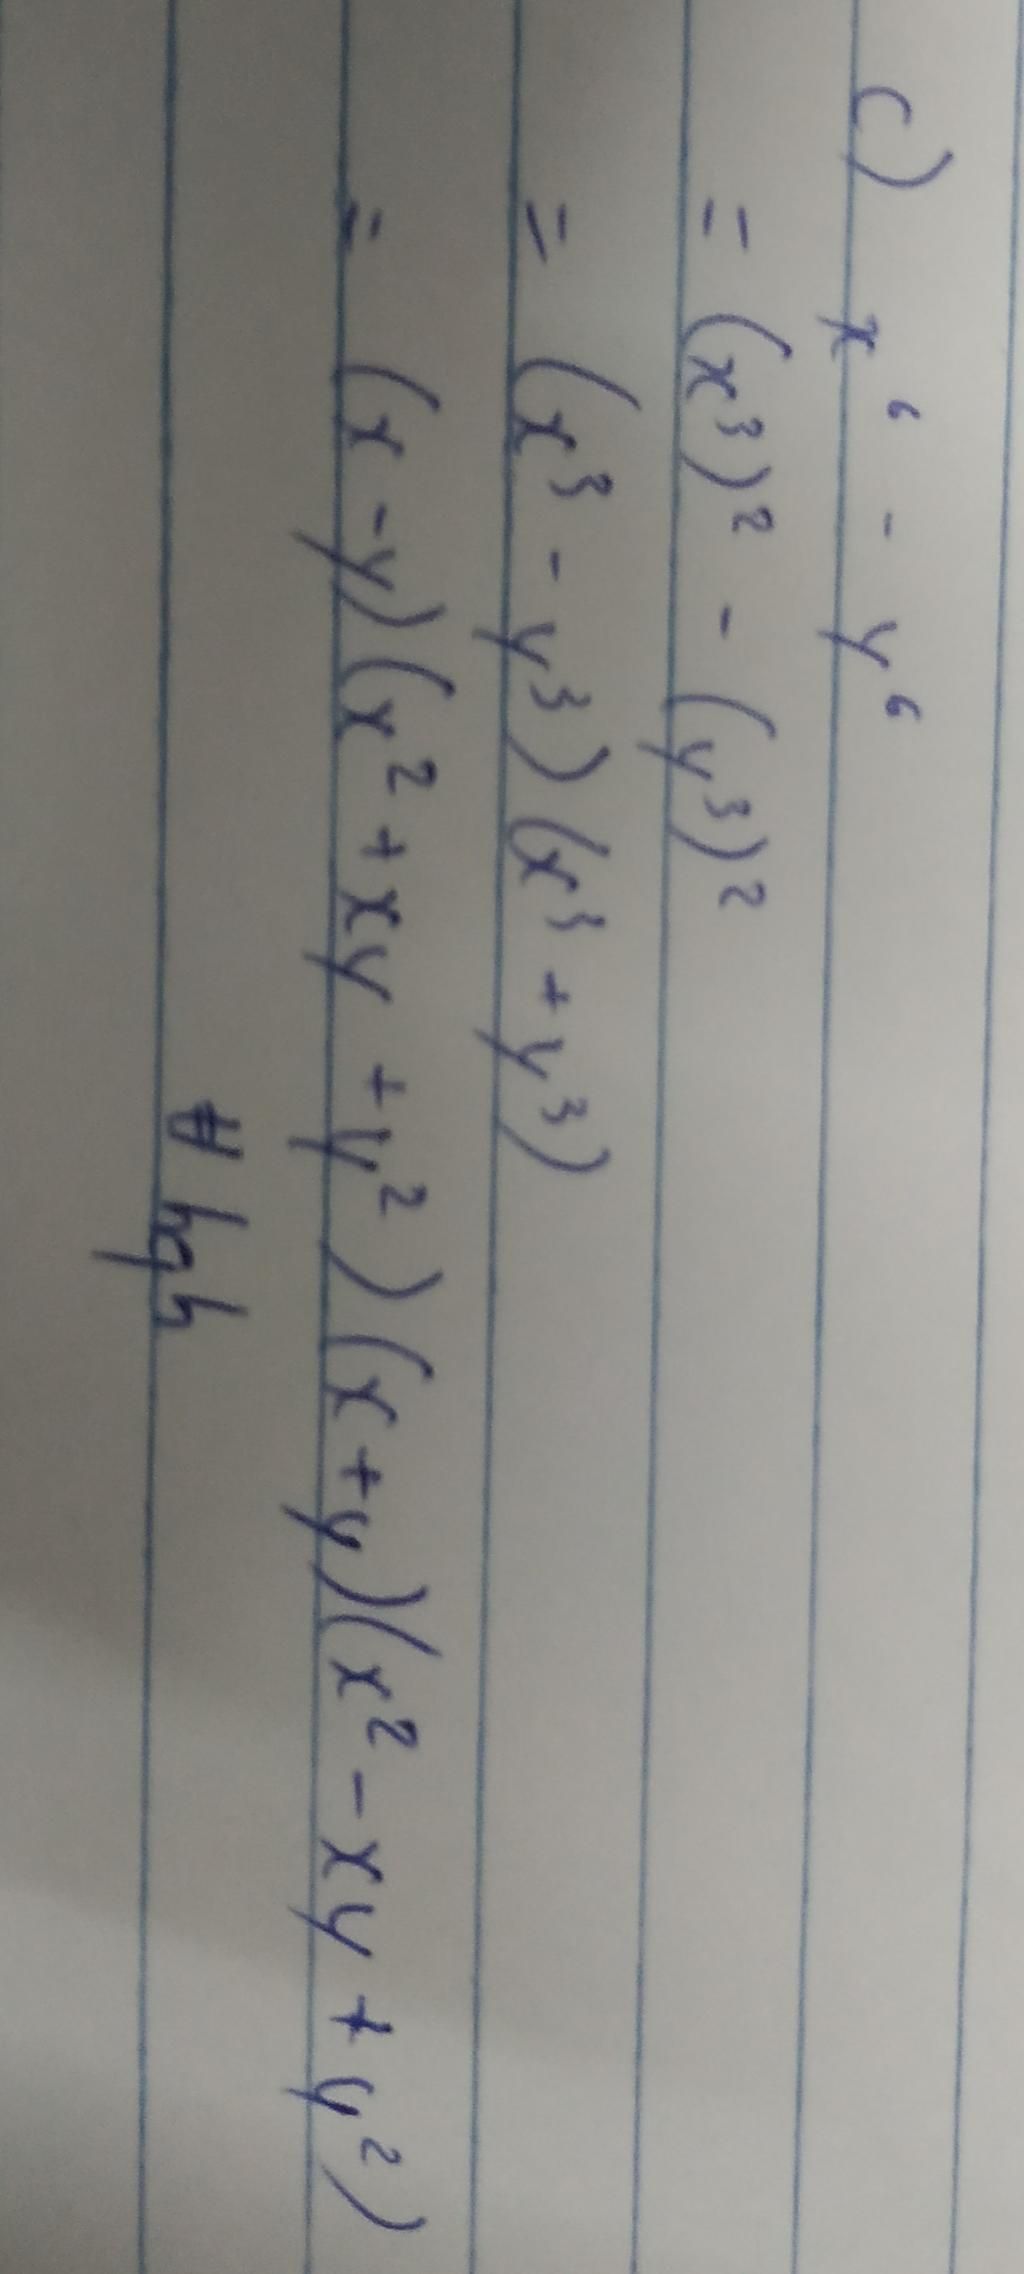 c) x⁶ - y⁶
= (x³)² - (y³)²
= (x³ - y³)(x³ + y³)
= (x - y)(x² + xy + y²)(x + y)(x² - xy + y²)
#